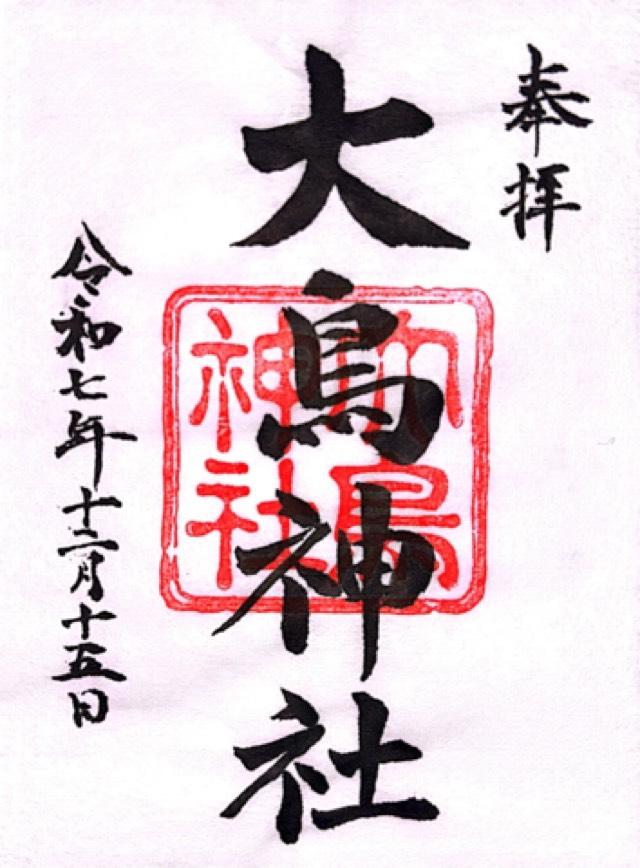 奉拝
大鳥神社
大鳥
神社
令和七年十二月十五日